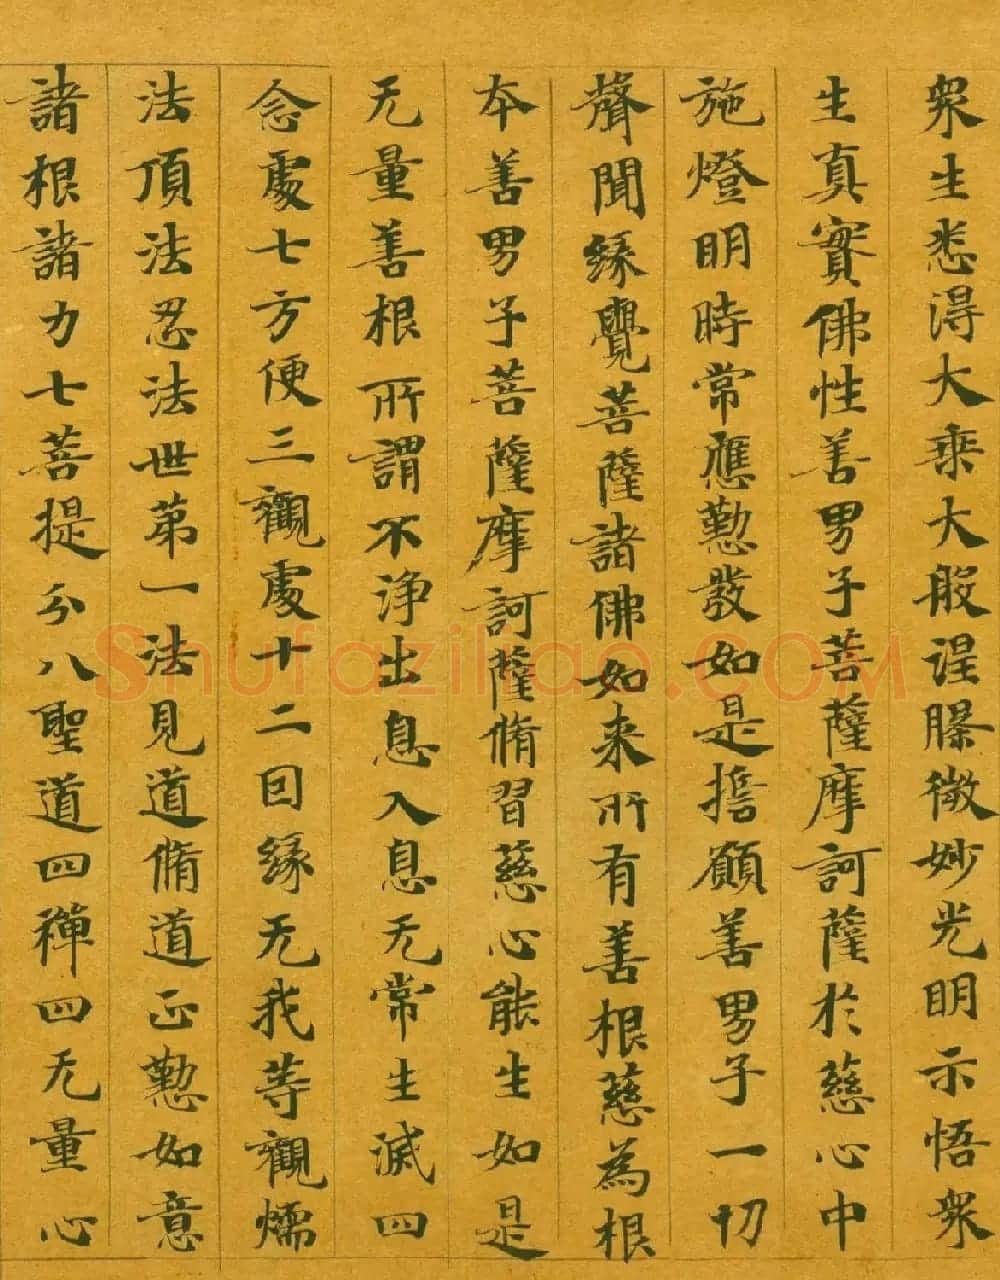 衆生悉得大乗大般涅槃微妙光明示悟衆
生真實佛性善男子菩薩摩訶薩於慈心中
施燈明時常應懃發如是擔願善男子一切
聲聞緣覺菩薩諸佛如来所有善根慈為根
本善男子菩薩摩訶薩脩習慈心能生如是
无量善根所謂不淨出息入息无常生滅四
念處七方便三觀處十二因緣无我等觀燸
法頂法忍法世第一法見道脩道正懃如意
諸根諸力七菩提分八聖道四禪四无量心
Shufaziliao.COM